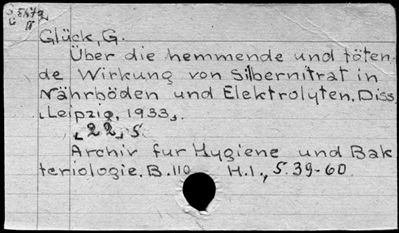 Glück, G.
Über die hemmende und töten-
de Wirkung von Silbernitrat in
Nährböden und Elektrolyten. Diss.
[Leipzig, 1933].
[22] S.
Archiv fur Hygiene und Bak
teriologie. B. 110 H.1., S. 39-60.